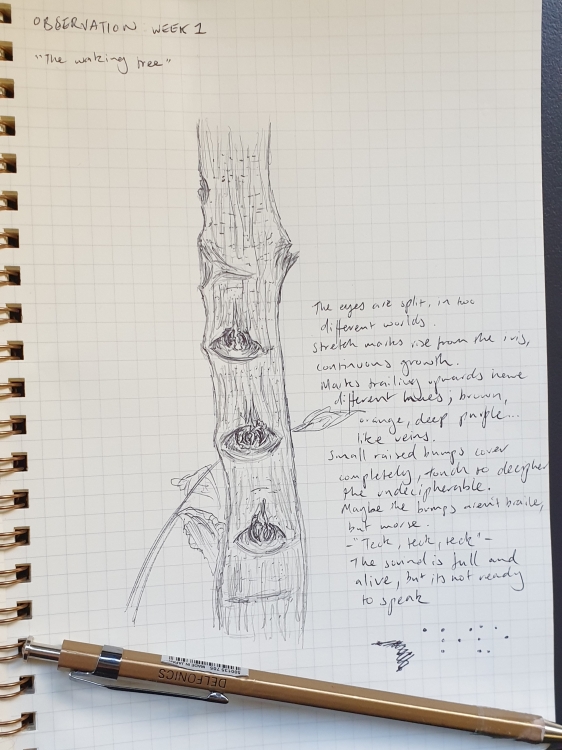 OBSERVATION WEEK 1
"The waking tree"
The eyes are split, in two
different worlds.
Stretch marks rise from the iris,
continuous growth.
Marks trailing upwards have
different hues; brown,
orange, deep purple...
like veins.
Small raised bumps cover
completely, touch to decipher
the undecipherable.
Maybe the bumps aren't braile,
but morse.
-"Teck, teck, teck"-
The sound is full and
alive, but its not ready
to speak
DELFONICS
MADE IN JAPAN